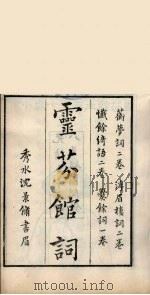 蘅夢詞二卷浮眉樓詞二卷
懺餘綺語二卷爨餘詞一卷
靈芬館詞
秀水沈景脩書眉
www.mtoou.info